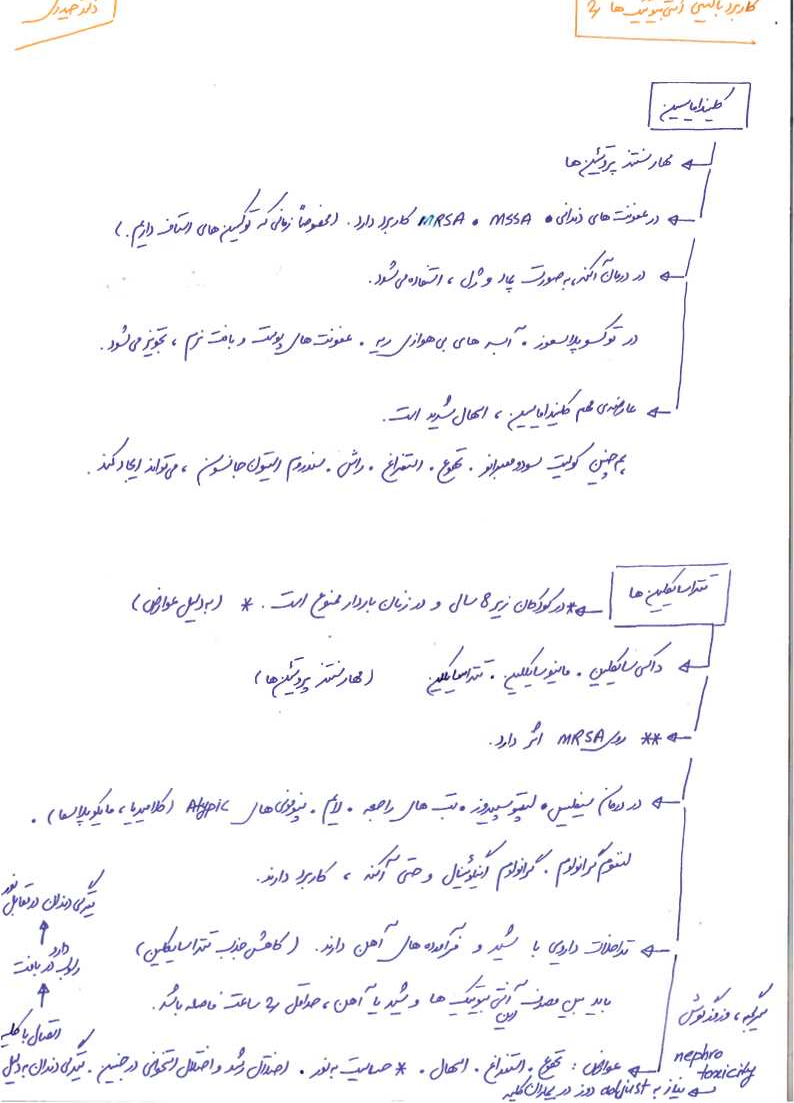 کاربرد بالینی آنتی بیوتیک ها 2
دکتر حیدری
کلیندامایسین
مهار سنتز پروتئین ها
در عفونت های دندانی . MSSA . MRSA کاربرد دارد. (مخصوصاً زمانی که توکسین های استاف داریم.)
در درمان آکنه، به صورت پماد و ژل، استفاده می شود.
در توکسوپلاسموز . آبسه های بی هوازی ریه . عفونت های پوست و بافت نرم، تجویز می شود.
عارضه ی مهم کلیندامایسین، اسهال شدید است.
هم چنین کولیت سودوممبرانو . تهوع . استفراغ . راش . سندروم استیون جانسون، می تواند ایجاد کند.
تتراسایکلین ها
* در کودکان زیر 8 سال و در زنان باردار ممنوع است. * (به دلیل عوارض)
داکسی سایکلین . ماینوسایکلین . تتراسایکلین (مهار سنتز پروتئین ها)
** روی MRSA اثر دارد.
در درمان سیفلیس . لپتوسپیروز . تب های راجعه . لایم . پنومونی های Atypic (کلامیدیا، مایکوپلاسما).
لنفوگرانولوم . گرانولوم اینگوئینال و حتی آکنه، کاربرد دارند.
تداخلات دارویی با شیر و فرآورده های آهن دارند. (کاهش جذب تتراسایکلین)
باید بین مصرف این آنتی بیوتیک ها و شیر یا آهن، حداقل 2 ساعت فاصله باشد.
عوارض: تهوع . استفراغ . اسهال . * حساسیت به نور . اختلال رشد و اختلال استخوانی در جنین . تیرگی دندان به دلیل
اتصال با کلسیم
رسوب در بافت دارد
تیرگی دندان در مقابل نور
سرگیجه، وزوز گوش
nephro
toxicity
نیاز به adjust دوز در بیماران کلیه